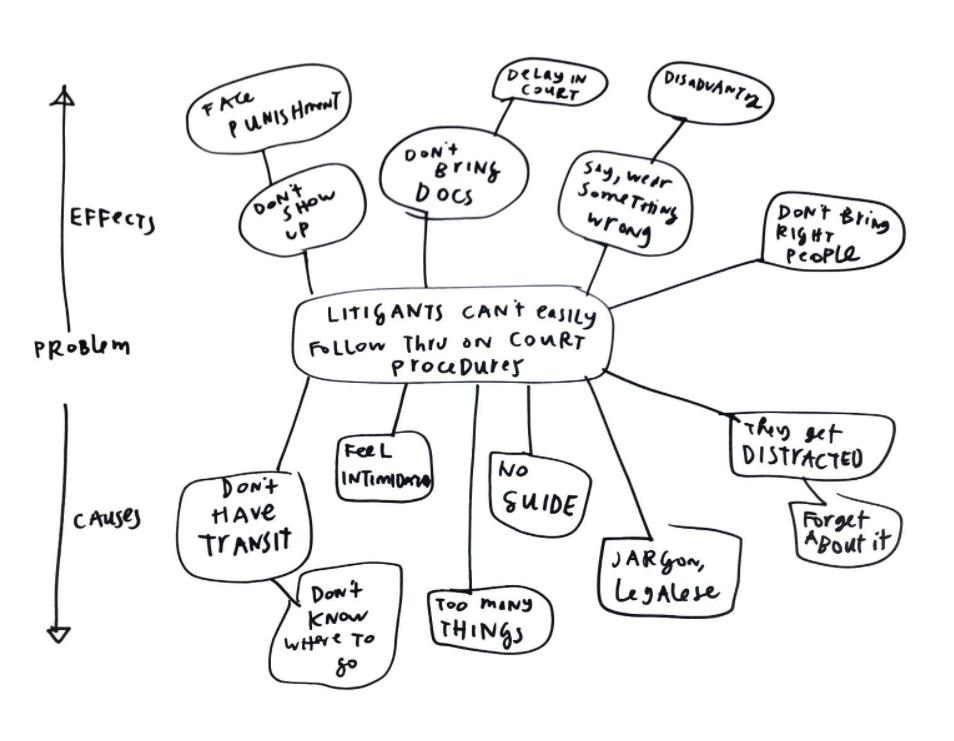 FACE
PUNISHMENT
DELAY IN
COURT
DISADVANTG
DON'T
SHOW
UP
DON'T
BRING
DOCS
SAY, WEAR
SOMETHING
WRONG
DON'T BRING
RIGHT
PEOPLE
EFFECTS
PROBLEM
CAUSES
LITIGANTS CAN'T EASILY
FOLLOW THRU ON COURT
PROCEDURES
DON'T
HAVE
TRANSIT
DON'T
KNOW
WHERE TO
GO
FEEL
INTIMIDATD
TOO MANY
THINGS
NO
GUIDE
JARGON,
LEGALESE
THEY GET
DISTRACTED
FORGET
ABOUT IT